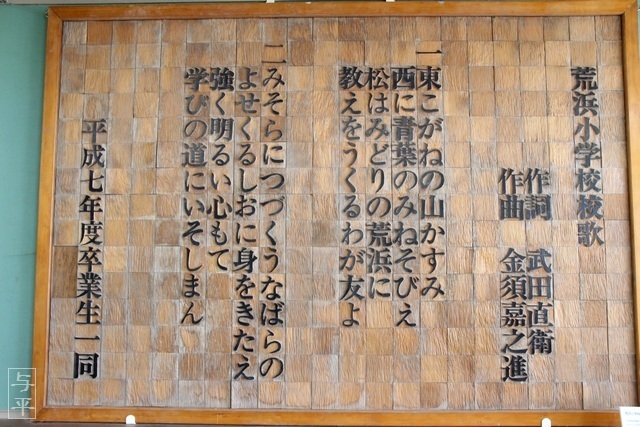 荒浜小学校校歌
作詞 武田直衛
作曲 金須嘉之進
一 東こがねの山かすみ
西に青葉のみねそびえ
松はみどりの荒浜に
教えをうくるわが友よ
二 みそらにつづくうなばらの
よせくるしおに身をきたえ
強く明るい心もて
学びの道にいそしまん
平成七年度卒業生一同
与平